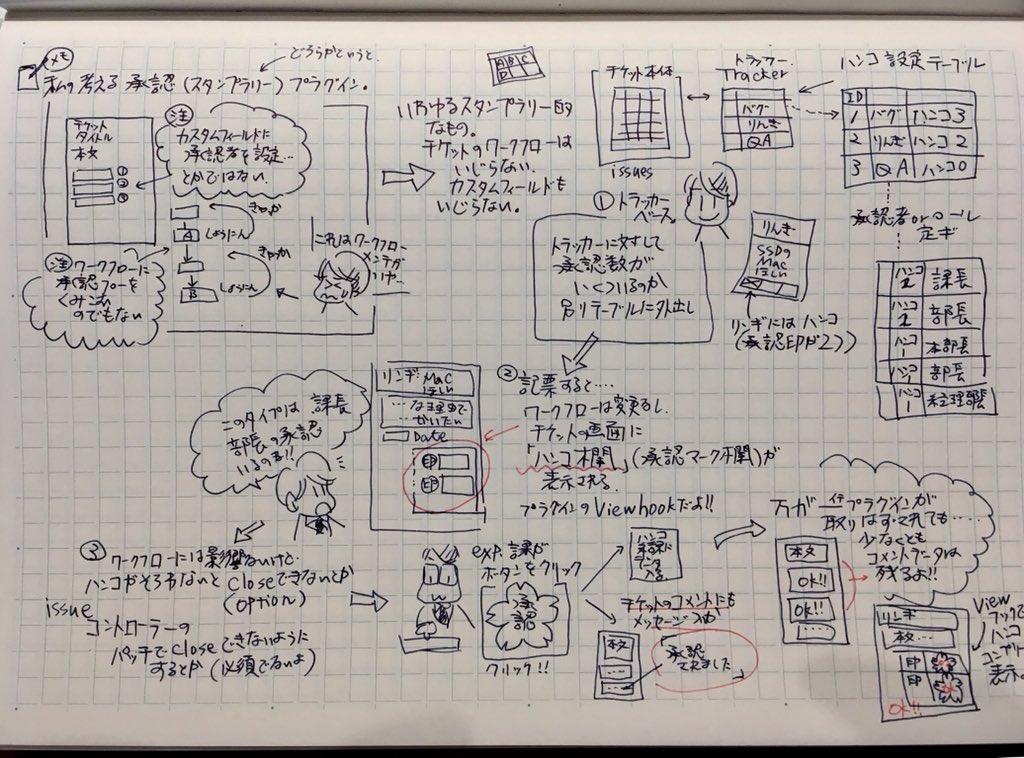 メモ
どちらかというと、
私の考える承認(スタンプラリー)プラグイン。
チケット
タイトル
本文
注
カスタムフィールドに
承認者を設定…
とかではない.
きゃっか
A
しょうにん
きゃっか
B
しょうにん
注 ワークフローに
承認フローを
くみこむ
のでもない
これはワークフロー
メンテが
いや…
いわゆるスタンプラリー的
なもの。
チケットのワークフローは
いじらない.
カスタムフィールドも
いじらない。
A B C
D
チケット本体
issues
トラッカー
Tracker
バグ
りんぎ
QA
ハンコ設定テーブル
ID
1 バグ ハンコ3
2 りんぎ ハンコ2
3 QA ハンコ0
承認者orロール
定ギ
ハンコ2 課長
ハンコ1 部長
ハンコ1 本部長
ハンコ1 部長
ハンコ1 経理部長
① トラッカー
ベース。
トラッカーに対して
承認数が
いくついるのか
別テーブルに外出し
りんぎ
SSDの
Mac
ほしい
リンギにはハンコ
(承認印が2コ)
このタイプは 課長
部長の承認
いるのね!!
リンギ: Mac
ほしい
Date
印
印
② 記票すると…
ワークフローは変更なし.
チケットの画面に
「ハンコ欄」(承認マーク欄)が
表示される.
プラグインのViewhookだよ!!
③ ワークフローには影響ないけど.
ハンコがそろわないとcloseできないとか
(option)
issue
コントローラーの
パッチでcloseできないように
するとか(必須でないよ)
exp. 課長が
ボタンをクリック
承認
クリック!!
ハンコ
承認に
データ
入る
チケットのコメントにも
メッセージが
本文
「承認
されました」
万が一プラグインが
取りはずされても……
少なくとも
コメントデータは
残るよ!!
本文
OK!!
OK!!
リンギ
本文…
印
印
OK!!
View
フックで
ハンコ
コンプリート
表示。